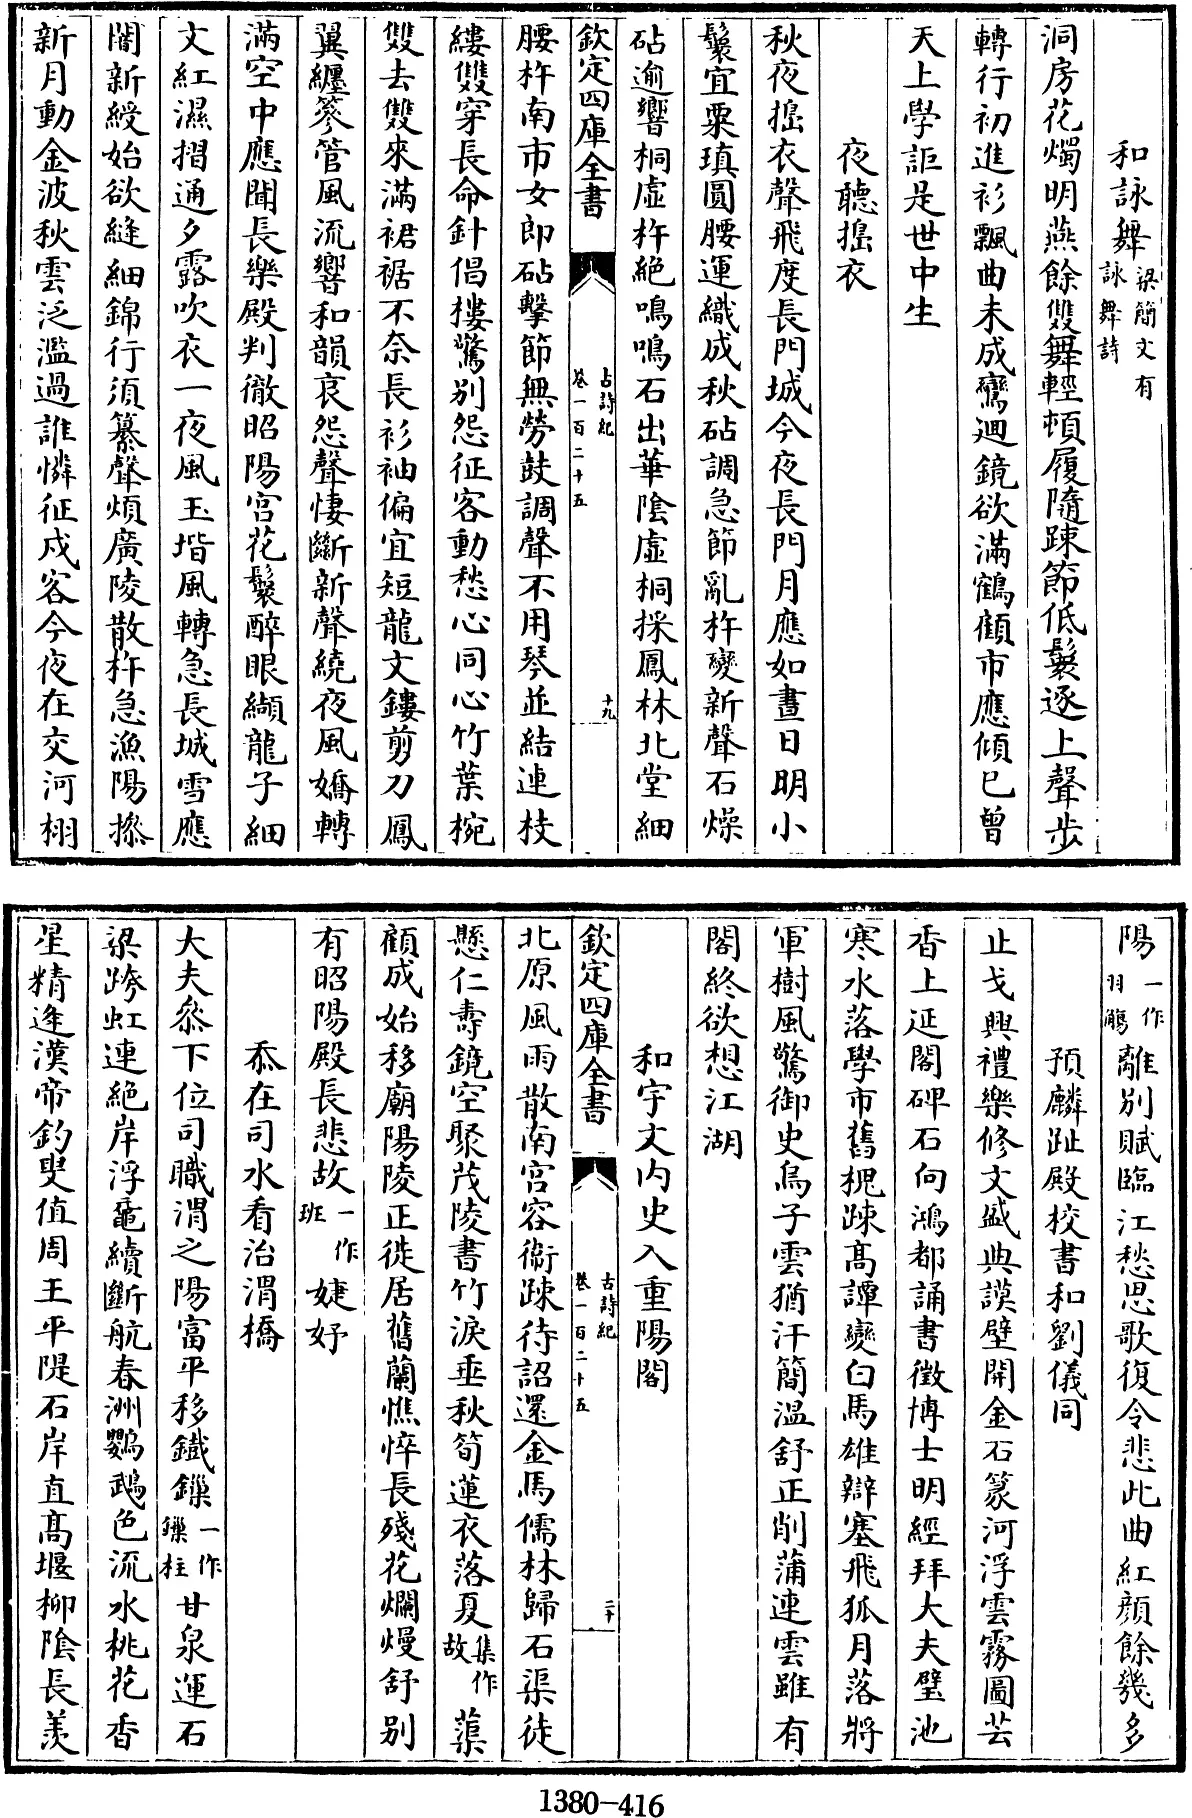 和詠舞梁簡文有詠舞詩
洞房花燭明燕餘雙舞輕頓履隨踈節低鬟逐上聲步
轉行初進衫飄曲未成鸞迴鏡欲滿鶴顧市應傾已曾
天上學詎是世中生
夜聽搗衣
秋夜搗衣聲飛度長門城今夜長門月應如晝日明小
鬟宜粟瑱圓腰運織成秋砧調急節亂杵變新聲石燥
砧逾響桐虛杵絶鳴鳴石出華陰虛桐採鳳林北堂細
欽定四庫全書 古詩紀卷一百二十五 十九
腰杵南市女郎砧擊節無勞鼓調聲不用琴並結連枝
縷雙穿長命針倡樓驚别怨征客動愁心同心竹葉椀
雙去雙來滿裙裾不奈長衫袖偏宜短龍文鏤剪刀鳳
翼纏篸管風流響和韻哀怨聲悽斷新聲繞夜風嬌轉
滿空中應聞長樂殿判徹昭陽宫花鬟醉眼纈龍子細
文紅濕摺通夕露吹衣一夜風玉堦風轉急長城雪應
闇新綬始欲縫細錦行須纂聲煩廣陵散杵急漁陽摻
新月動金波秋雲泛濫過誰憐征戍客今夜在交河栩
陽一作羽觴離别賦臨江愁思歌復令悲此曲紅顔餘幾多
預麟趾殿校書和劉儀同
止戈興禮樂修文盛典謨壁開金石篆河浮雲霧圖芸
香上延閣碑石向鴻都誦書徵博士明經拜大夫璧池
寒水落學市舊槐踈髙譚變白馬雄辯塞飛狐月落將
軍樹風驚御史烏子雲猶汗簡温舒正削蒲連雲雖有
閣終欲想江湖
和宇文内史入重陽閣
欽定四庫全書 古詩紀卷一百二十五 二十
北原風雨散南宫容衛踈待詔還金馬儒林歸石渠徒
懸仁壽鏡空聚茂陵書竹淚垂秋筍蓮衣落夏集作故蕖
顧成始移廟陽陵正徙居舊蘭憔悴長殘花爛熳舒别
有昭陽殿長悲故一作班婕妤
忝在司水看治渭橋
大夫叅下位司職渭之陽富平移鐵鏁一作鏁柱甘泉運石
梁跨虹連絶岸浮黿續斷航春洲鸚鵡色流水桃花香
星精逢漢帝釣叟值周王平隄石岸直髙堰柳隂長羡
1380-416